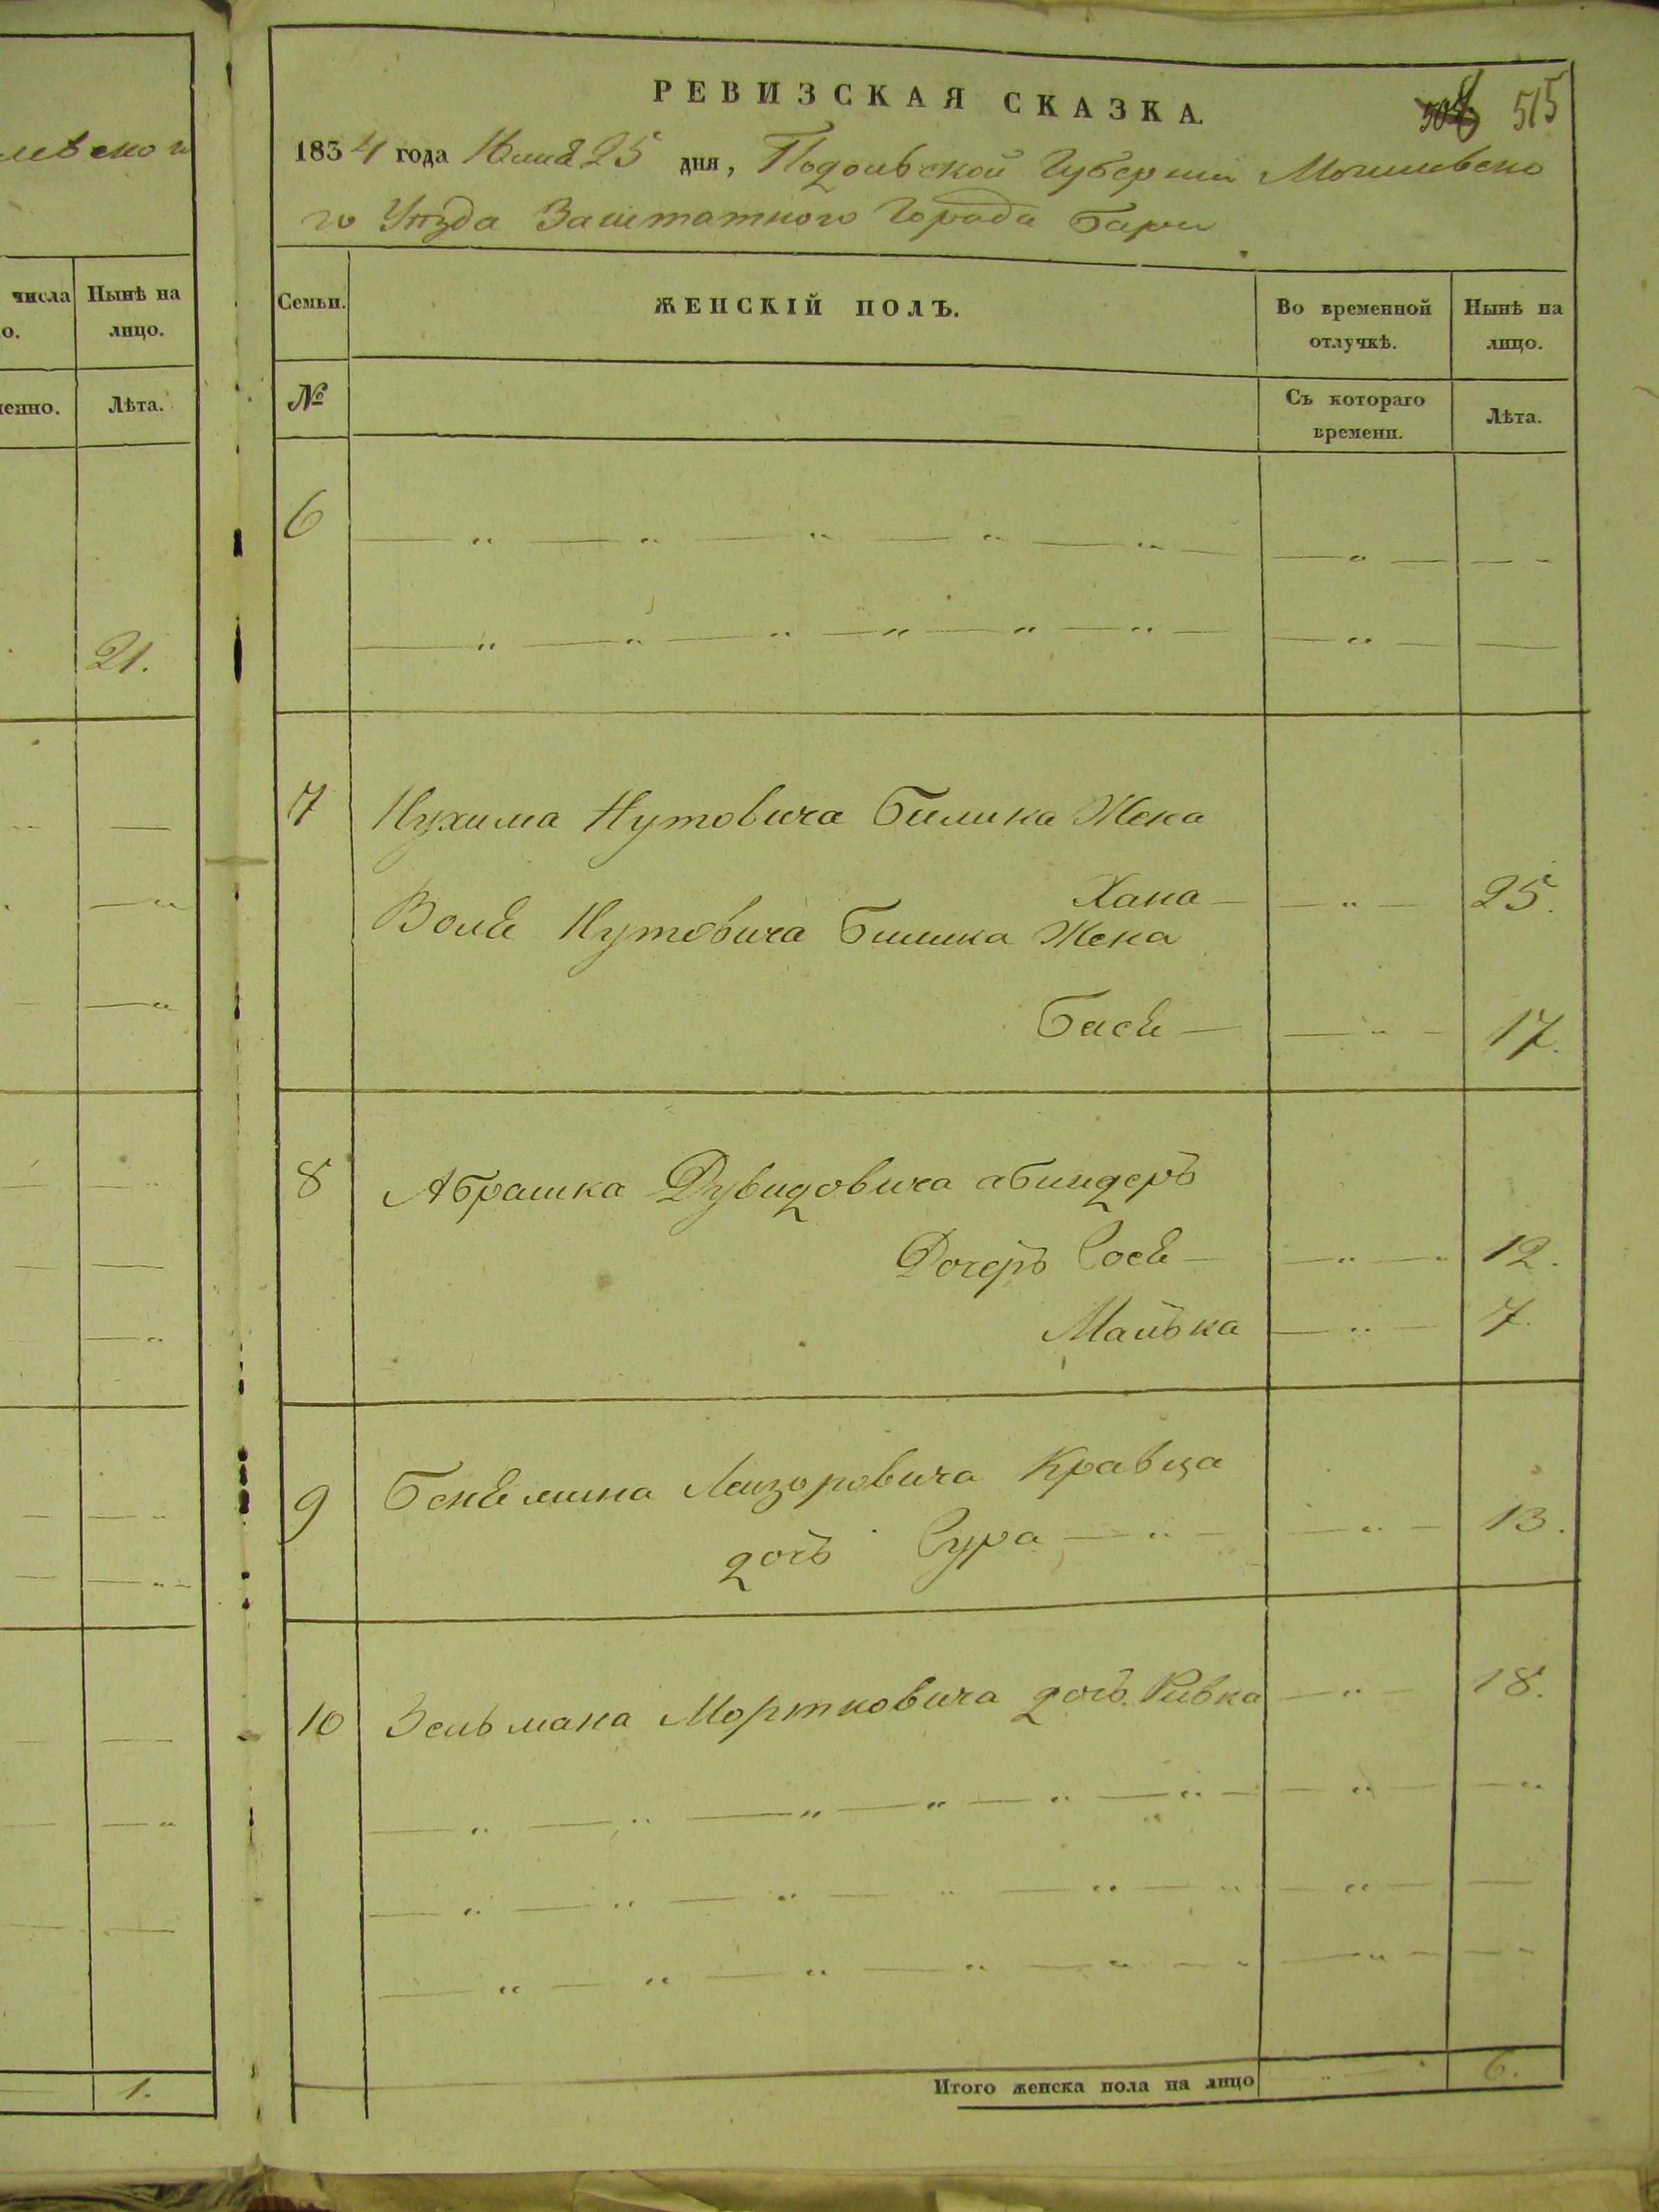 левского
числа
Нынѣ на
о.
лицо.
енно.
Лѣта.
21.
1.
РЕВИЗСКАЯ СКАЗКА.
515
1834 года Юния 25 дня, Подольской Губернии Могилевско
го Уѣзда Заштатного Города Бара
Семьи.
ЖЕНСКІЙ ПОЛЪ.
Во временной отлучкѣ.
Нынѣ на лицо.
№
Съ котораго времени.
Лѣта.
6
7 Нухима Нутовича Билика Жена
Хана — 25.
Волѣ Нутовича Билика Жена
Бася — 17.
8 Абрашка Дувидовича абиндеръ
Дочеръ Сося — 12.
Малька 7.
9 Беньямина Лейзоровича Кравца
дочь Сура — 13.
10 Зельмана Мортковича дочь Ривка 18.
Итого женска пола на лицо 6.